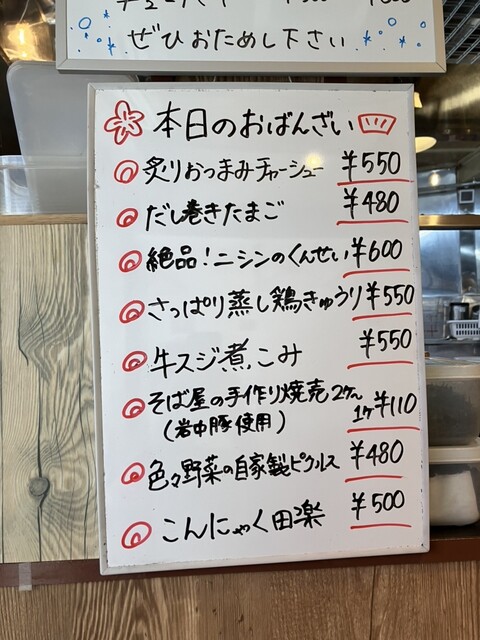 ぜひおためし下さい
本日のおばんざい
炙りおつまみチャーシュー ¥550
だし巻きたまご ¥480
絶品！ニシンのくんせい ¥600
さっぱり蒸し鶏きゅうり ¥550
牛スジ煮こみ ¥550
そば屋の手作り焼売2ケ〜 1ケ¥110
(岩中豚使用)
色々野菜の自家製ピクルス ¥480
こんにゃく田楽 ¥500